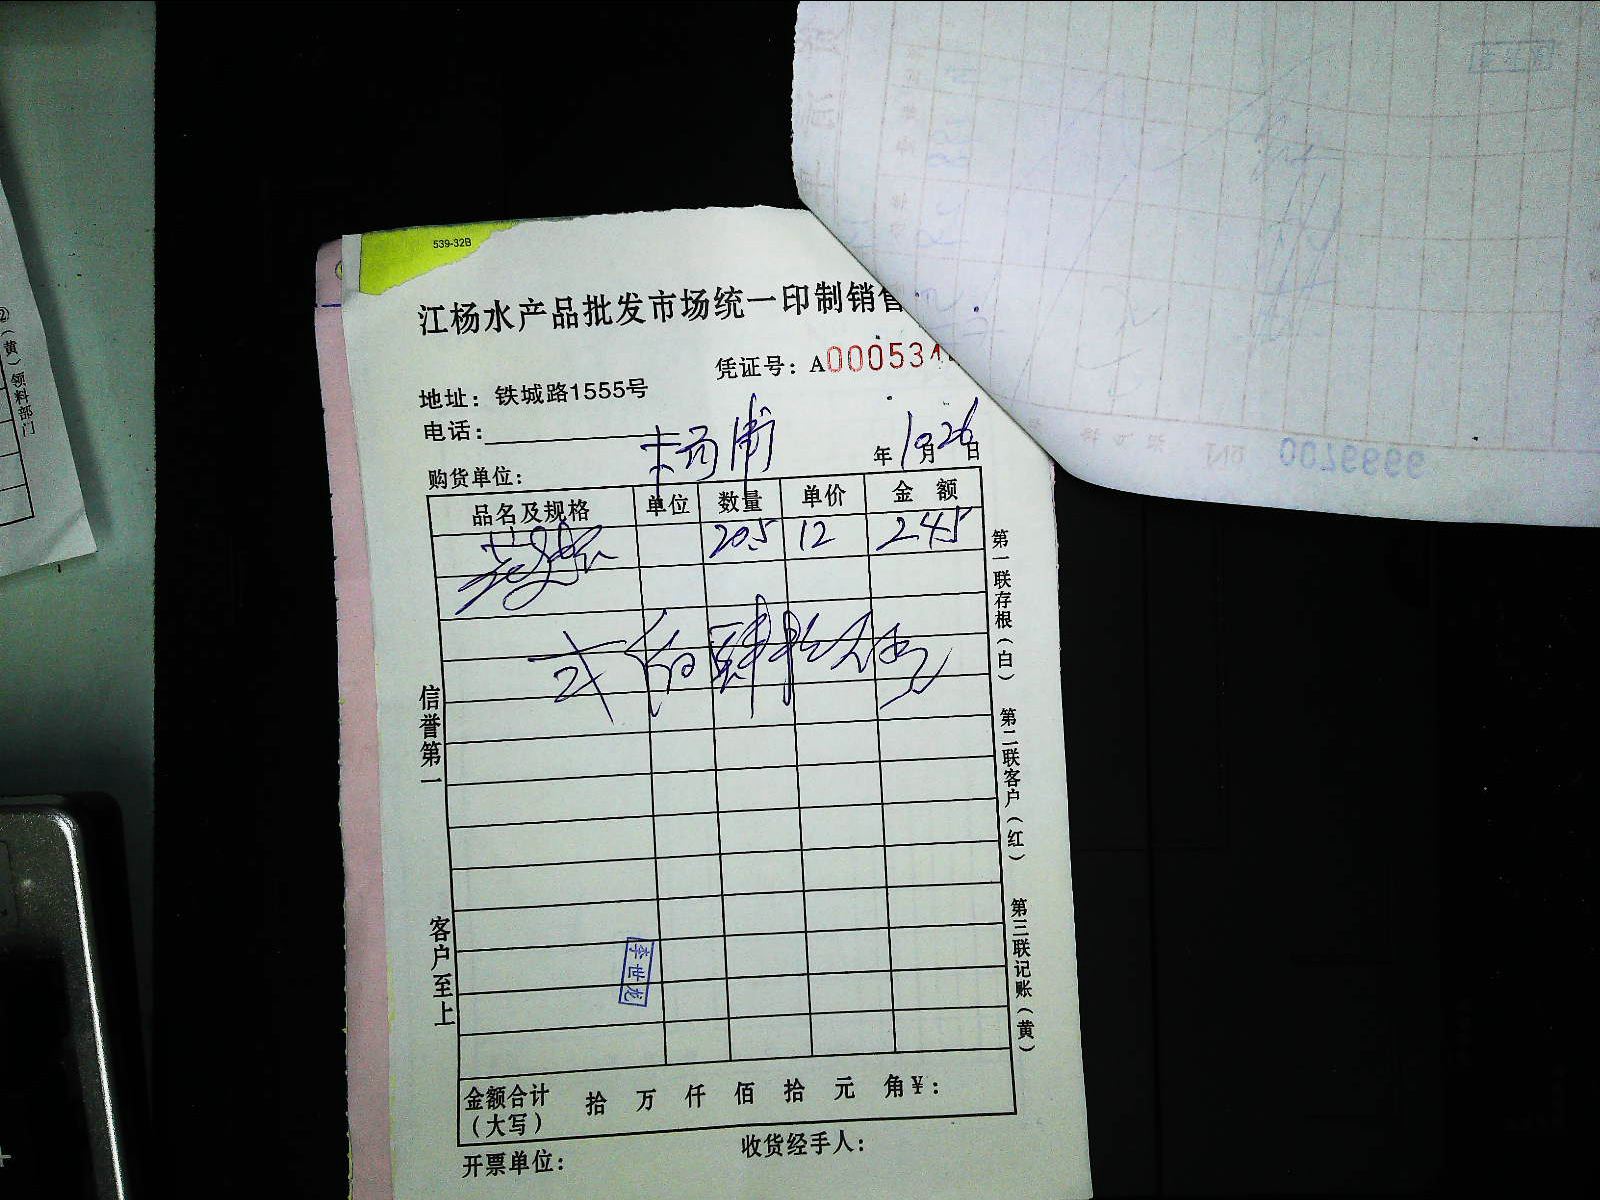 539-32B
江杨水产品批发市场统一印制销售
凭证号: A000534
地址: 铁城路1555号
电话:
购货单位: 杨浦 年10月26日
品名及规格 单位 数量 单价 金额
20.5 12 245
弍佰肆拾伍元
信誉第一
客户至上
第一联存根(白) 第二联客户(红) 第三联记账(黄)
李世龙
金额合计(大写) 拾 万 仟 佰 拾 元 角 ¥:
开票单位: 收货经手人:
(黄)领料部门